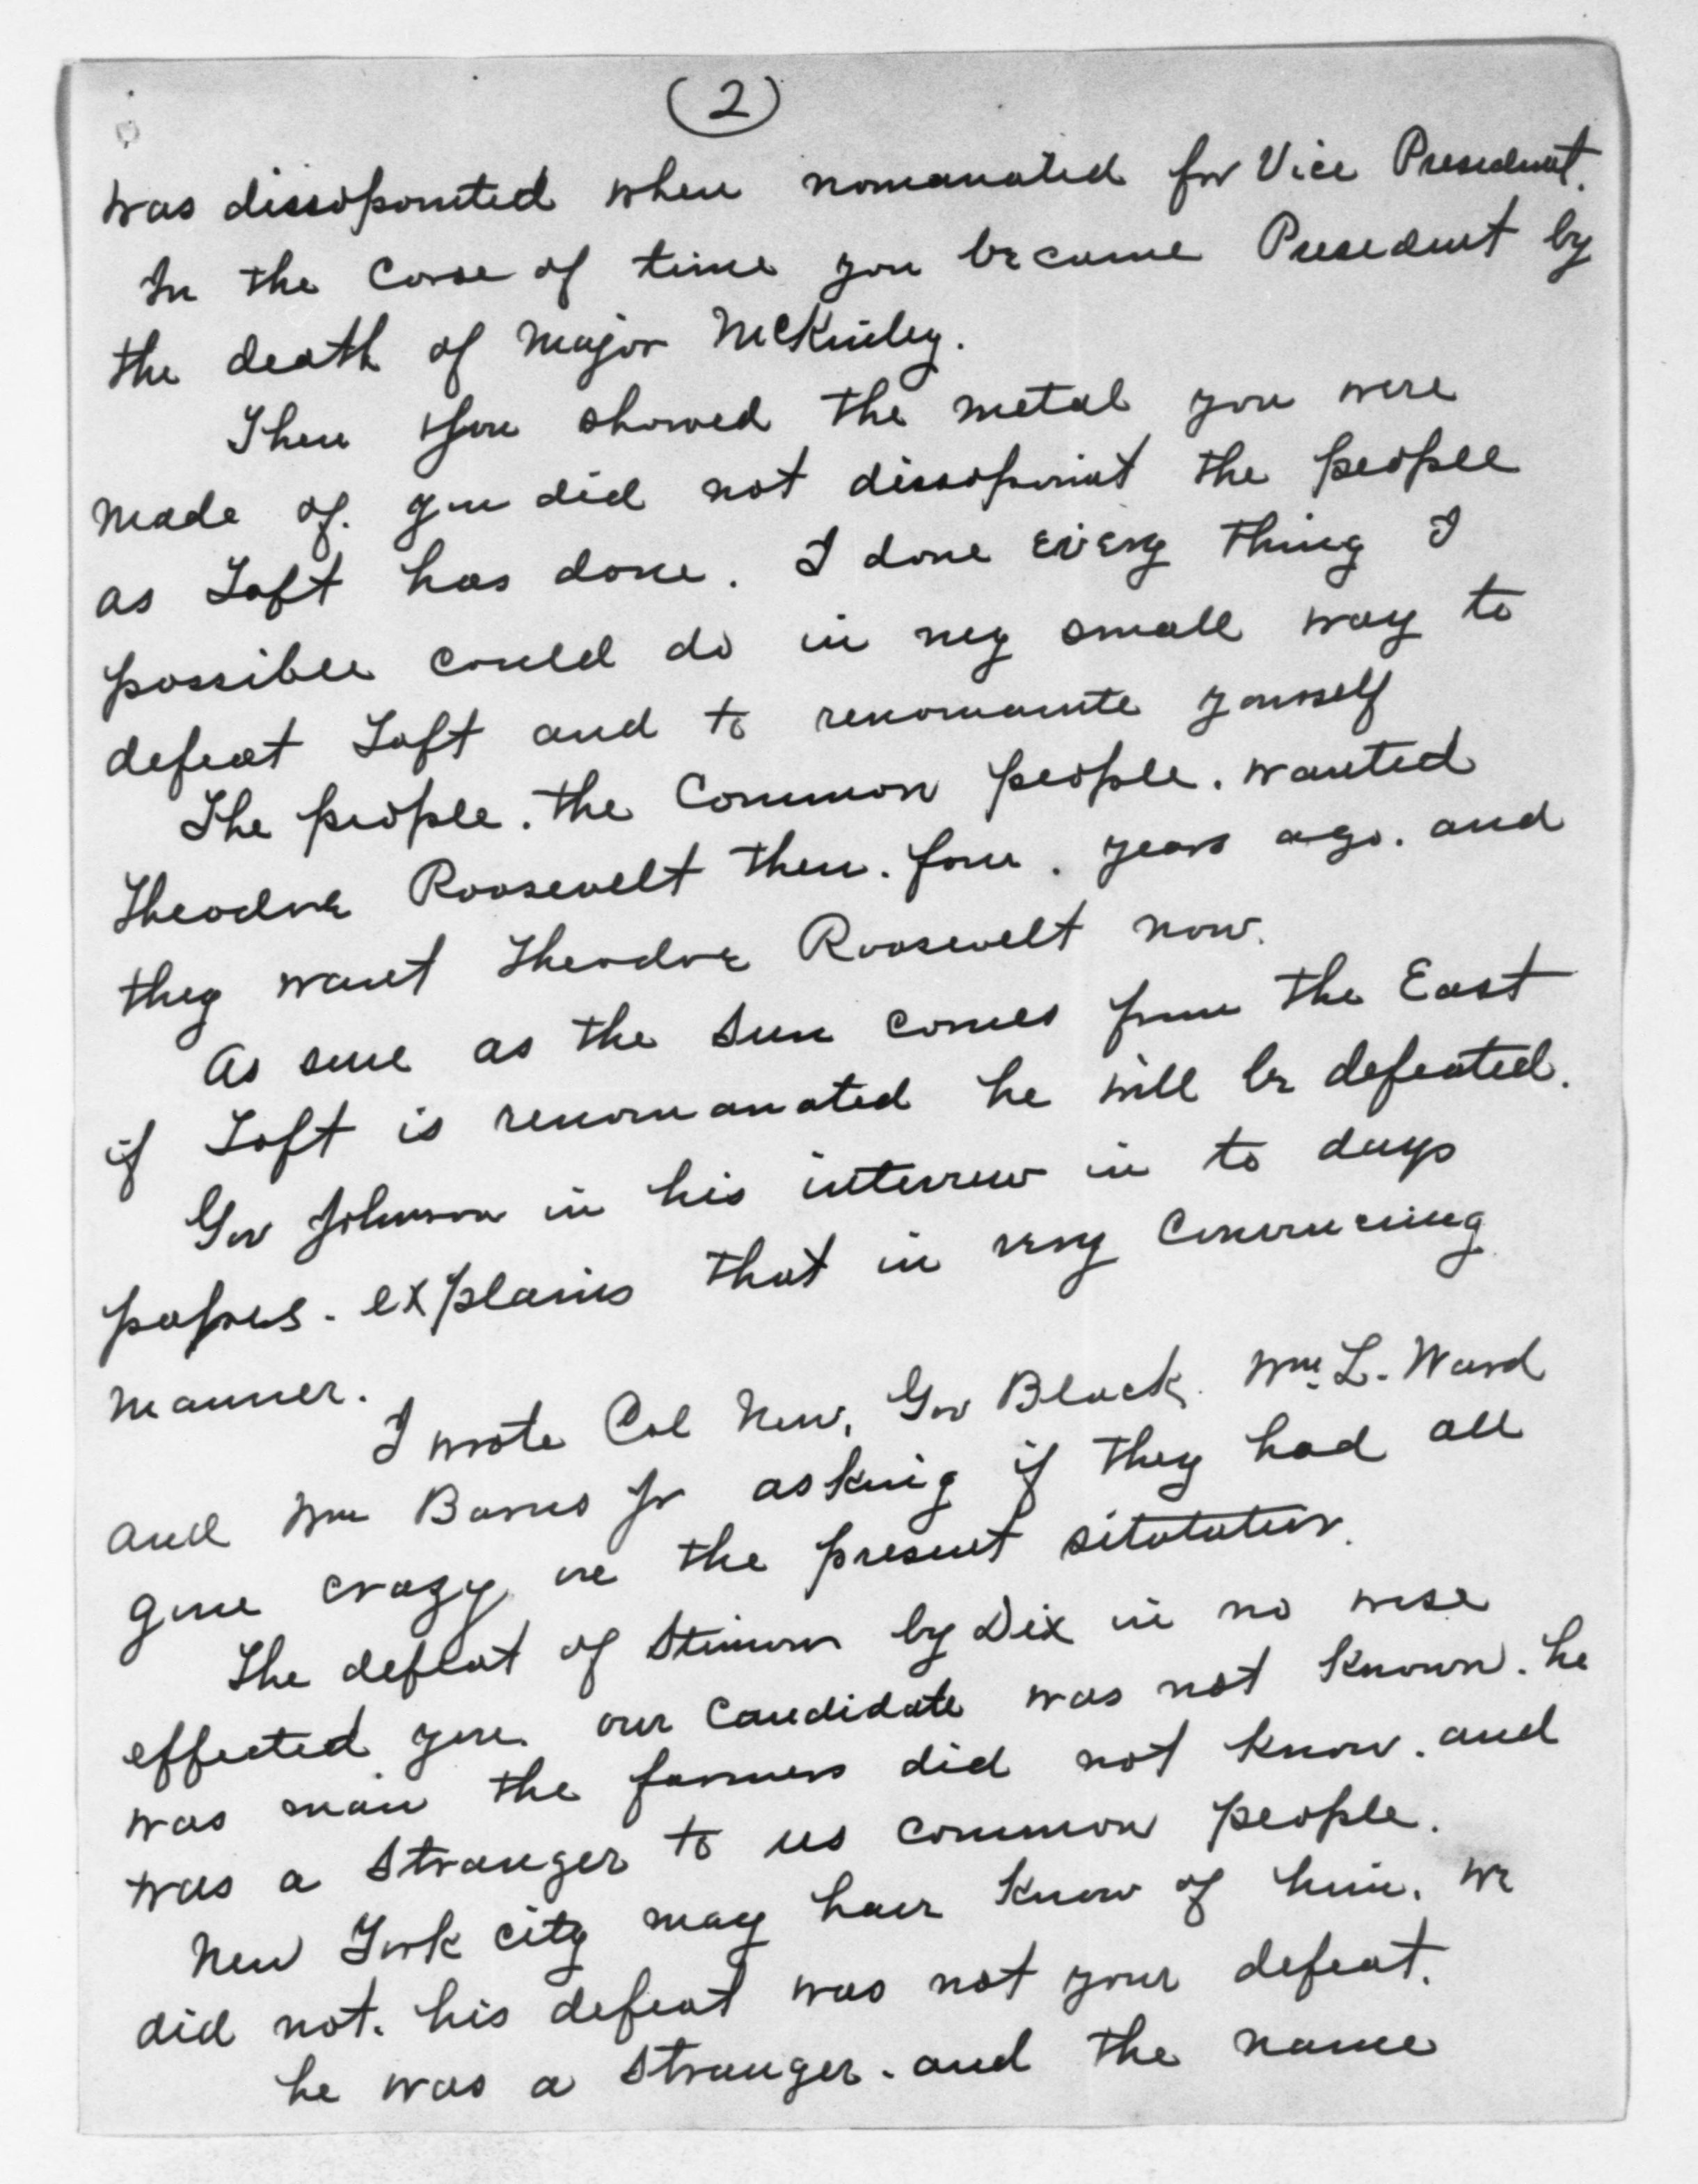 (2)
was dissoponted when nomanated for Vice President.
In the Corse of time you became President by
the death of Major McKinley.
Then you showed the metal you were
made of. you did not dissoponiat the people
as Taft has done. I done every thing I
possible could do in my small way to
defeat Taft and to renomante yourself
The people. the Common people. wanted
Theodore Roosevelt then. four. years ago. and
they want Theodore Roosevelt now.
As sure as the Sun comes from the East
if Taft is renomanated he will be defeated.
Gov Johnson in his interview in to days
papers. explains that in very Convincing
manner.
I wrote Col New, Gov Black. Wm. L. Ward
and Wm Barnes Jr asking if they had all
gone crazy on the present sitatation.
The defeat of Stimson by Dix in no wise
effected you. our Candidate was not Known. he
was main the farmers did not Know. and
was a Stranger to us common people.
New York city may have Know of him. we
did not. his defeat was not your defeat.
he was a Stranger. and the name